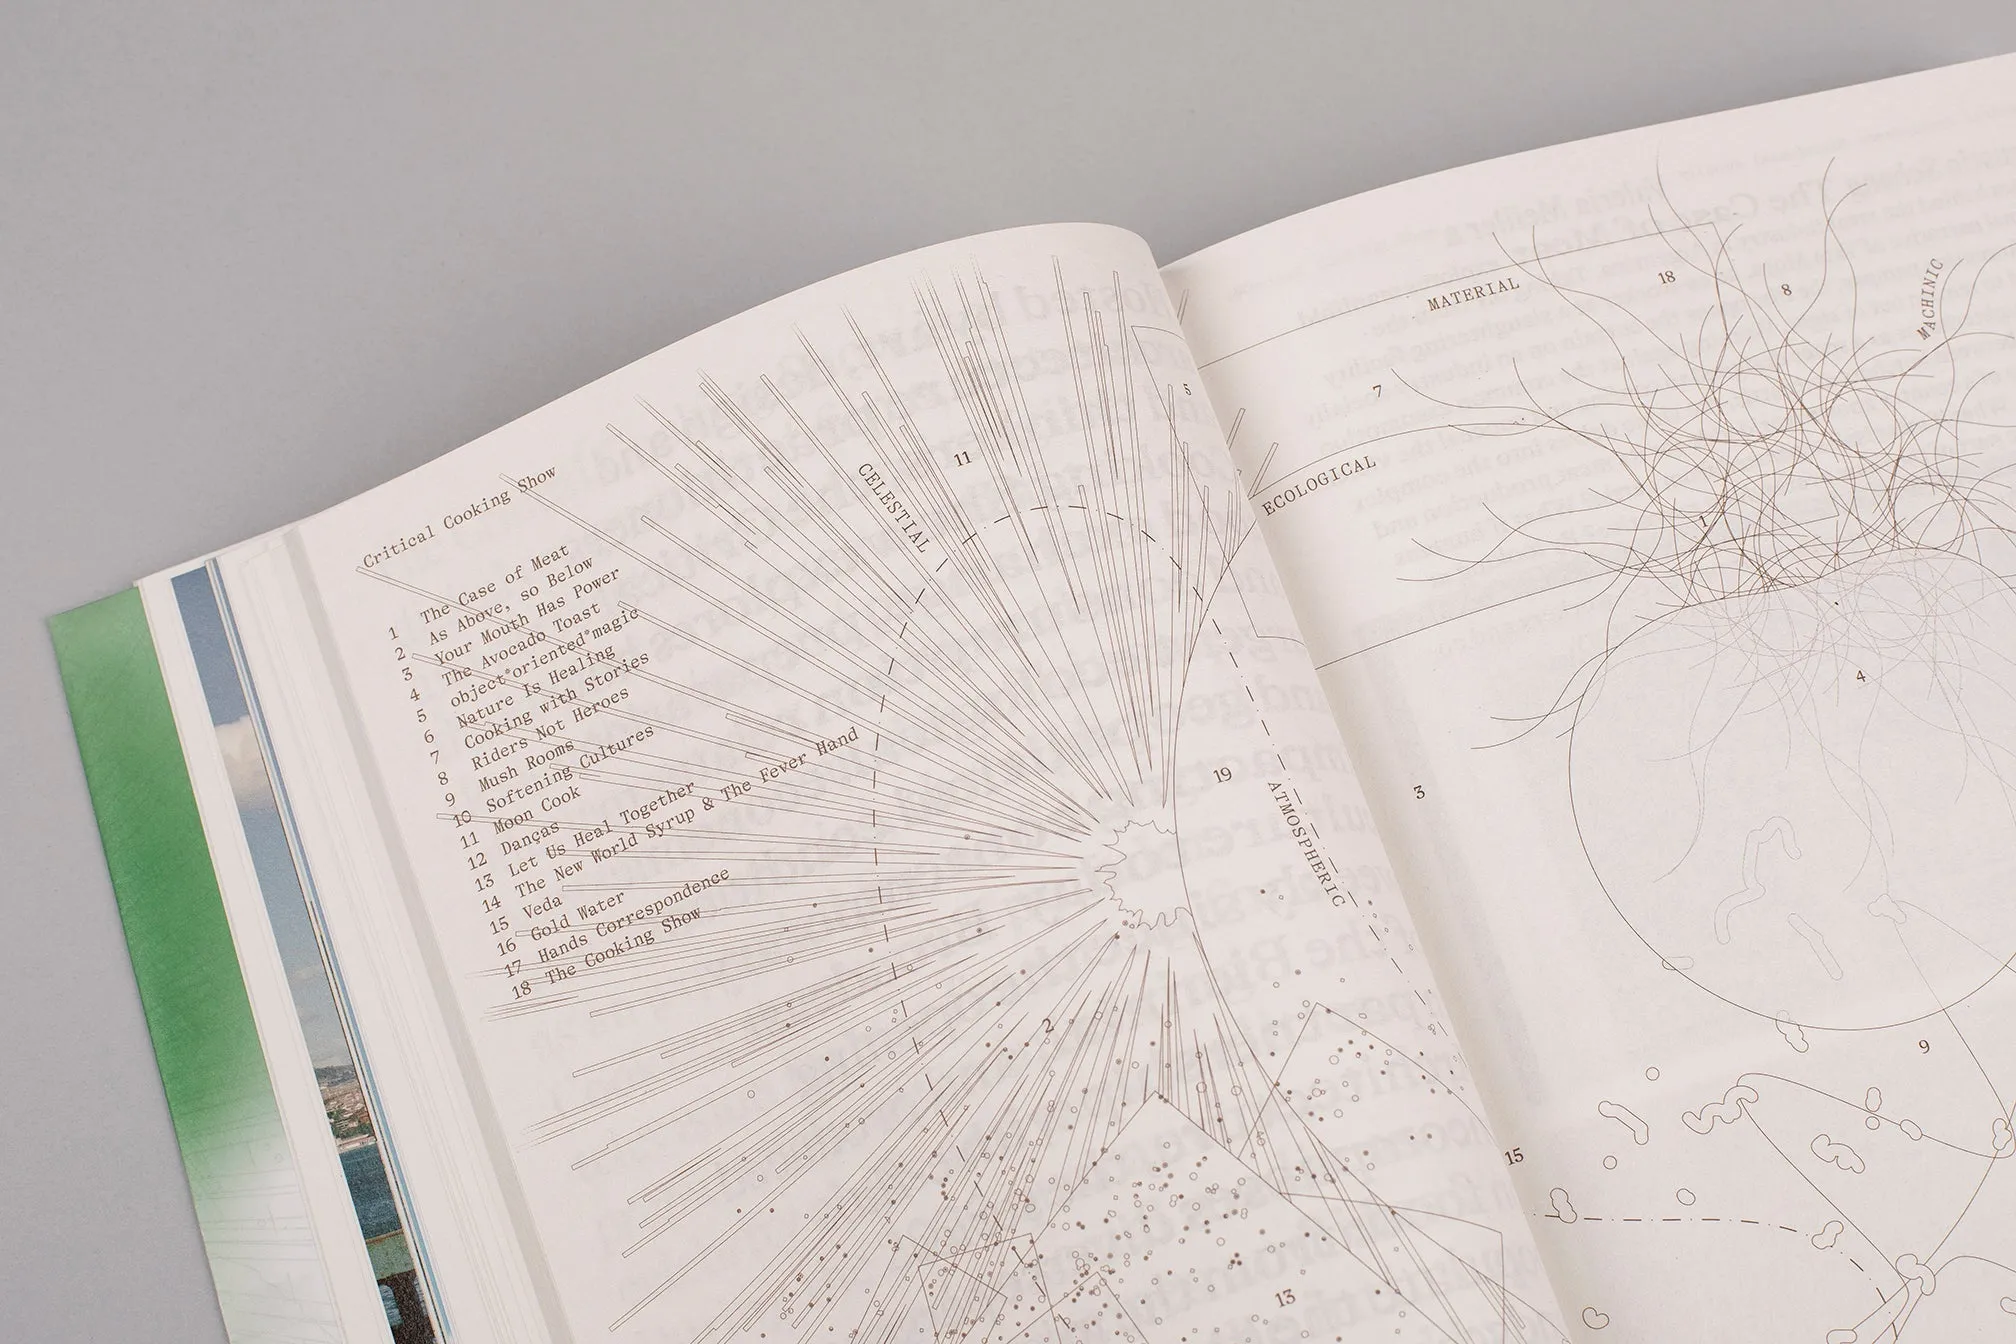 Critical Cooking Show
1 The Case of Meat
2 As Above, so Below
3 Your Mouth Has Power
4 The Avocado Toast
5 object*oriented*magic
6 Nature Is Healing
7 Cooking with Stories
8 Riders Not Heroes
9 Mush Rooms
10 Softening Cultures
11 Moon Cook
12 Danças
13 Let Us Heal Together
14 The New World Syrup & The Fever Hand
15 Veda
16 Gold Water
17 Hands Correspondence
18 The Cooking Show
5
11
CELESTIAL
19
ATMOSPHERIC
2
13
MATERIAL
18
8
MACHINIC
7
ECOLOGICAL
1
4
3
9
15